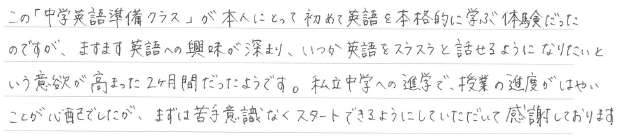 この「中学英語準備クラス」が本人にとって初めて英語を本格的に学ぶ体験だった
のですが、ますます英語への興味が深まり、いつか英語をスラスラと話せるようになりたいと
いう意欲が高まった2ヶ月間だったようです。私立中学への進学で、授業の進度がはやい
ことが心配でしたが、まずは苦手意識なくスタートできるようにしていただいて感謝しております